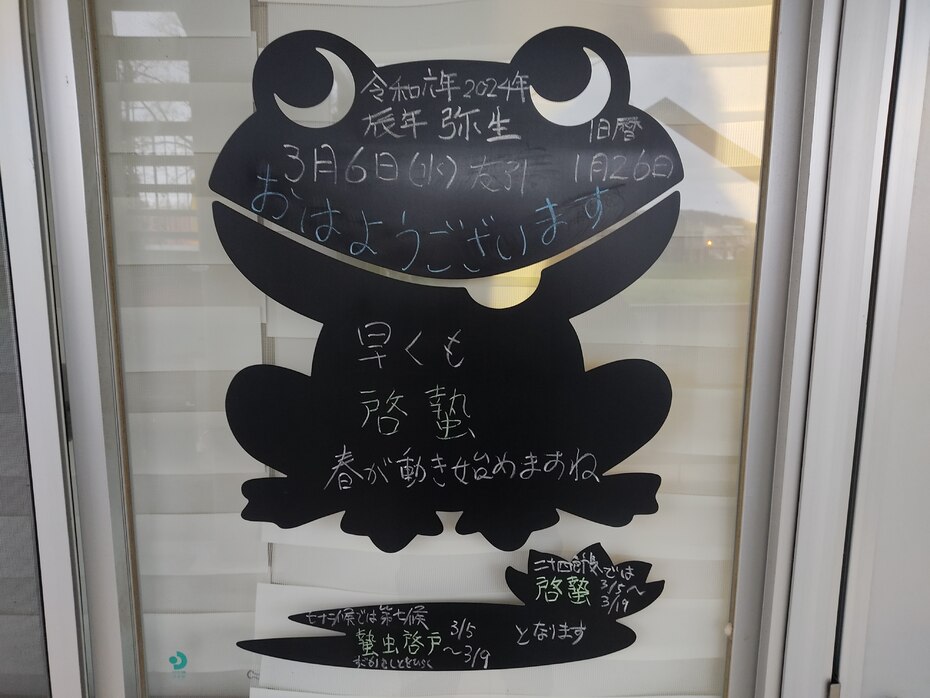 令和六年2024年
辰年 弥生 旧暦
3月6日(水) 友引 1月26日
おはようございます
早くも
啓蟄
春が動き始めますね
二十四節気では
啓蟄 3/5〜
3/19
七十二候では第七候
蟄虫啓戸 3/5
〜3/9
となります